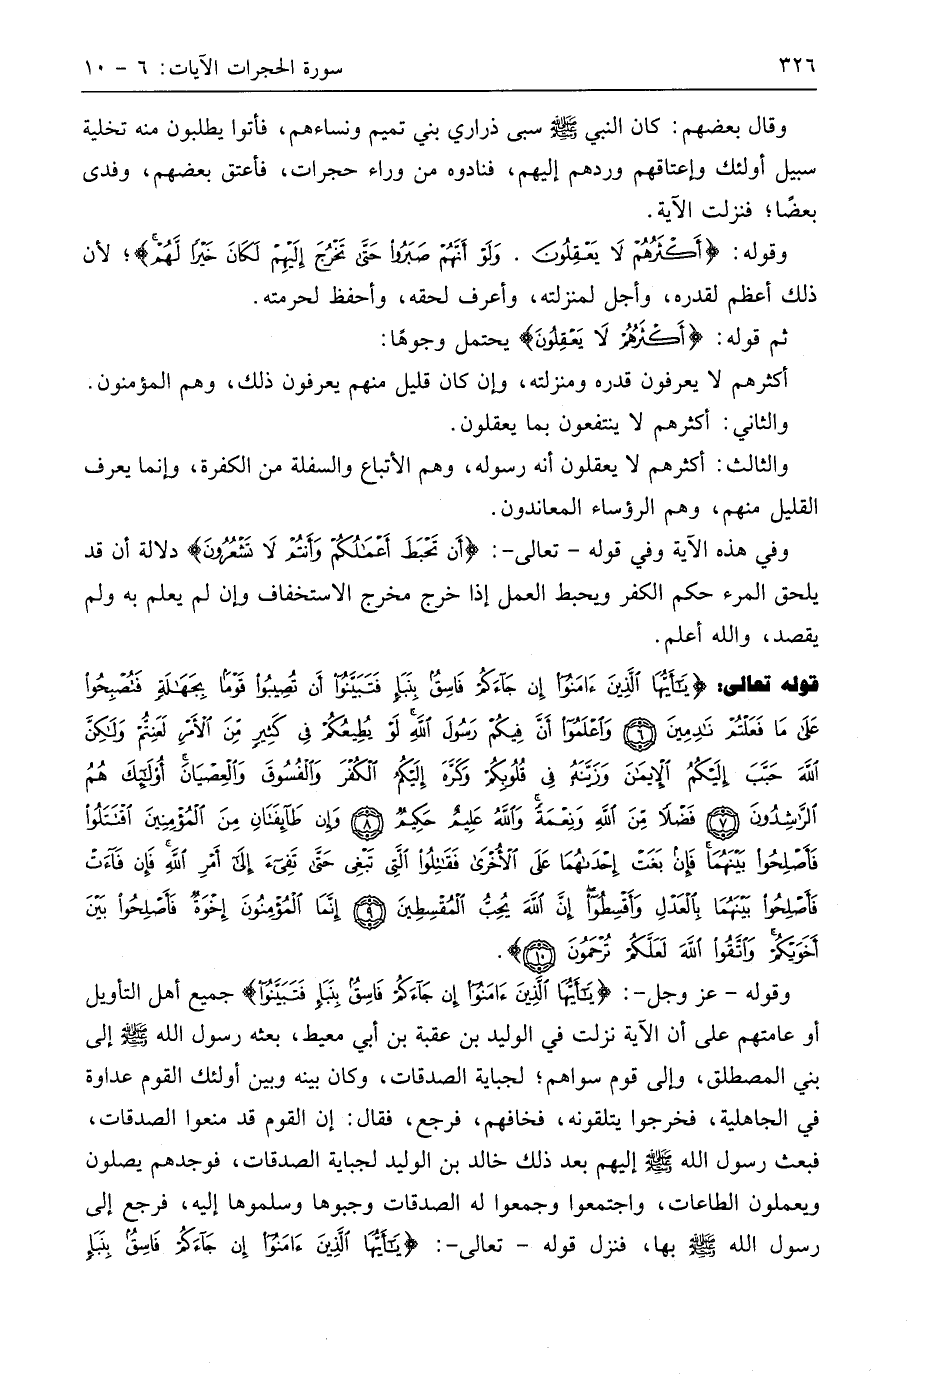 ٣٢٦ سورة الحجرات الآيات: ٦ - ١٠
وقال بعضهم: كان النبي ﷺ سبى ذراري بني تميم ونساءهم، فأتوا يطلبون منه تخلية
سبيل أولئك وإعتاقهم وردهم إليهم، فنادوه من وراء حجرات، فأعتق بعضهم، وفدى
بعضًا؛ فنزلت الآية.
وقوله: ﴿أَكْثَرُهُمْ لَا يَعْقِلُونَ . وَلَوْ أَنَّهُمْ صَبَرُوا۟ حَتَّىٰ تَخْرُجَ إِلَيْهِمْ لَكَانَ خَيْرًا لَّهُمْ ۚ﴾؛ لأن
ذلك أعظم لقدره، وأجل لمنزلته، وأعرف لحقه، وأحفظ لحرمته.
ثم قوله: ﴿أَكْثَرُهُمْ لَا يَعْقِلُونَ﴾ يحتمل وجوهًا:
أكثرهم لا يعرفون قدره ومنزلته، وإن كان قليل منهم يعرفون ذلك، وهم المؤمنون.
والثاني: أكثرهم لا ينتفعون بما يعقلون.
والثالث: أكثرهم لا يعقلون أنه رسوله، وهم الأتباع والسفلة من الكفرة، وإنما يعرف
القليل منهم، وهم الرؤساء المعاندون.
وفي هذه الآية وفي قوله - تعالى-: ﴿أَن تَحْبَطَ أَعْمَٰلُكُمْ وَأَنتُمْ لَا تَشْعُرُونَ﴾ دلالة أن قد
يلحق المرء حكم الكفر ويحبط العمل إذا خرج مخرج الاستخفاف وإن لم يعلم به ولم
يقصد، والله أعلم.
قوله تعالى: ﴿يَٰٓأَيُّهَا ٱلَّذِينَ ءَامَنُوٓا۟ إِن جَآءَكُمْ فَاسِقٌۢ بِنَبَإٍ فَتَبَيَّنُوٓا۟ أَن تُصِيبُوا۟ قَوْمًۢا بِجَهَٰلَةٍ فَتُصْبِحُوا۟
عَلَىٰ مَا فَعَلْتُمْ نَٰدِمِينَ ﴿٦﴾ وَٱعْلَمُوٓا۟ أَنَّ فِيكُمْ رَسُولَ ٱللَّهِ ۚ لَوْ يُطِيعُكُمْ فِى كَثِيرٍ مِّنَ ٱلْأَمْرِ لَعَنِتُّمْ وَلَٰكِنَّ
ٱللَّهَ حَبَّبَ إِلَيْكُمُ ٱلْإِيمَٰنَ وَزَيَّنَهُۥ فِى قُلُوبِكُمْ وَكَرَّهَ إِلَيْكُمُ ٱلْكُفْرَ وَٱلْفُسُوقَ وَٱلْعِصْيَانَ ۚ أُو۟لَٰٓئِكَ هُمُ
ٱلرَّٰشِدُونَ ﴿٧﴾ فَضْلًا مِّنَ ٱللَّهِ وَنِعْمَةً ۚ وَٱللَّهُ عَلِيمٌ حَكِيمٌ ﴿٨﴾ وَإِن طَآئِفَتَانِ مِنَ ٱلْمُؤْمِنِينَ ٱقْتَتَلُوا۟
فَأَصْلِحُوا۟ بَيْنَهُمَا ۖ فَإِنۢ بَغَتْ إِحْدَىٰهُمَا عَلَى ٱلْأُخْرَىٰ فَقَٰتِلُوا۟ ٱلَّتِى تَبْغِى حَتَّىٰ تَفِىٓءَ إِلَىٰٓ أَمْرِ ٱللَّهِ ۚ فَإِن فَآءَتْ
فَأَصْلِحُوا۟ بَيْنَهُمَا بِٱلْعَدْلِ وَأَقْسِطُوٓا۟ ۖ إِنَّ ٱللَّهَ يُحِبُّ ٱلْمُقْسِطِينَ ﴿٩﴾ إِنَّمَا ٱلْمُؤْمِنُونَ إِخْوَةٌ فَأَصْلِحُوا۟ بَيْنَ
أَخَوَيْكُمْ ۚ وَٱتَّقُوا۟ ٱللَّهَ لَعَلَّكُمْ تُرْحَمُونَ ﴿١٠﴾﴾.
وقوله - عز وجل-: ﴿يَٰٓأَيُّهَا ٱلَّذِينَ ءَامَنُوٓا۟ إِن جَآءَكُمْ فَاسِقٌۢ بِنَبَإٍ فَتَبَيَّنُوٓا۟﴾ جميع أهل التأويل
أو عامتهم على أن الآية نزلت في الوليد بن عقبة بن أبي معيط، بعثه رسول الله ﷺ إلى
بني المصطلق، وإلى قوم سواهم؛ لجباية الصدقات، وكان بينه وبين أولئك القوم عداوة
في الجاهلية، فخرجوا يتلقونه، فخافهم، فرجع، فقال: إن القوم قد منعوا الصدقات،
فبعث رسول الله ﷺ إليهم بعد ذلك خالد بن الوليد لجباية الصدقات، فوجدهم يصلون
ويعملون الطاعات، واجتمعوا وجمعوا له الصدقات وجبوها وسلموها إليه، فرجع إلى
رسول الله ﷺ بها، فنزل قوله - تعالى-: ﴿يَٰٓأَيُّهَا ٱلَّذِينَ ءَامَنُوٓا۟ إِن جَآءَكُمْ فَاسِقٌۢ بِنَبَإٍ